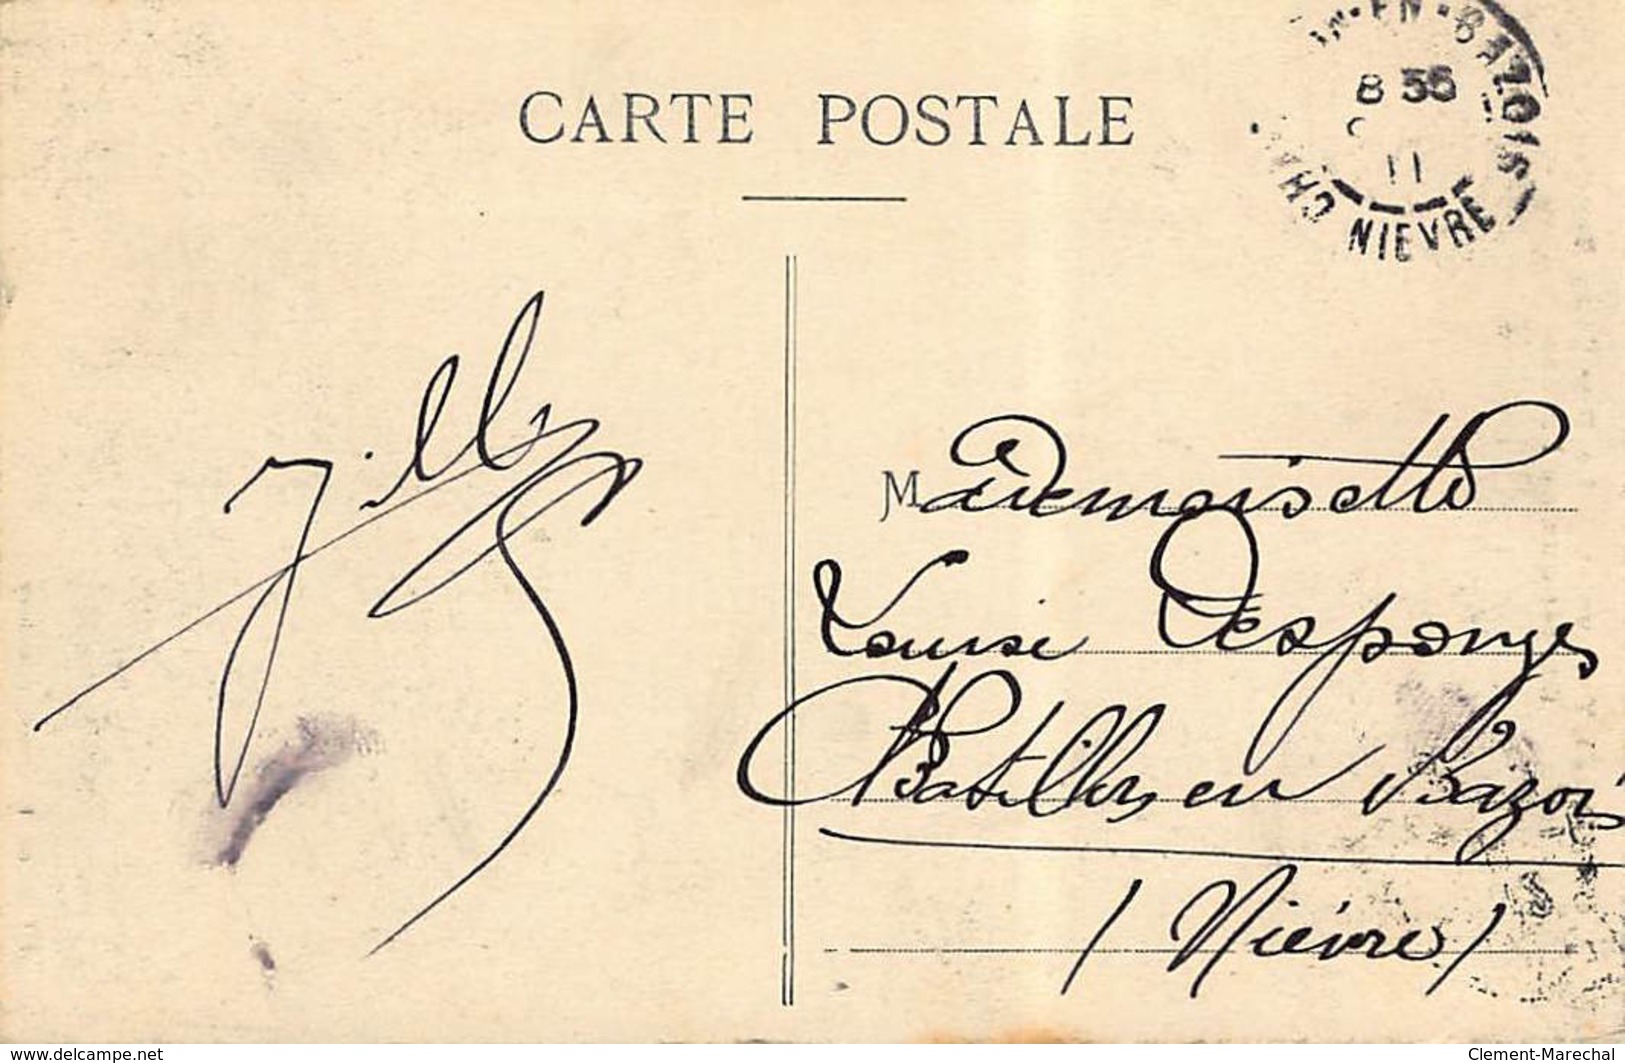 CARTE POSTALE
N-EN-BAZOIS
8 35
11
NIEVRE
Mademoiselle
Louise Desponges
Chatillon en Bazois
(Nièvre)
www.delcampe.net
Clement-Marechal